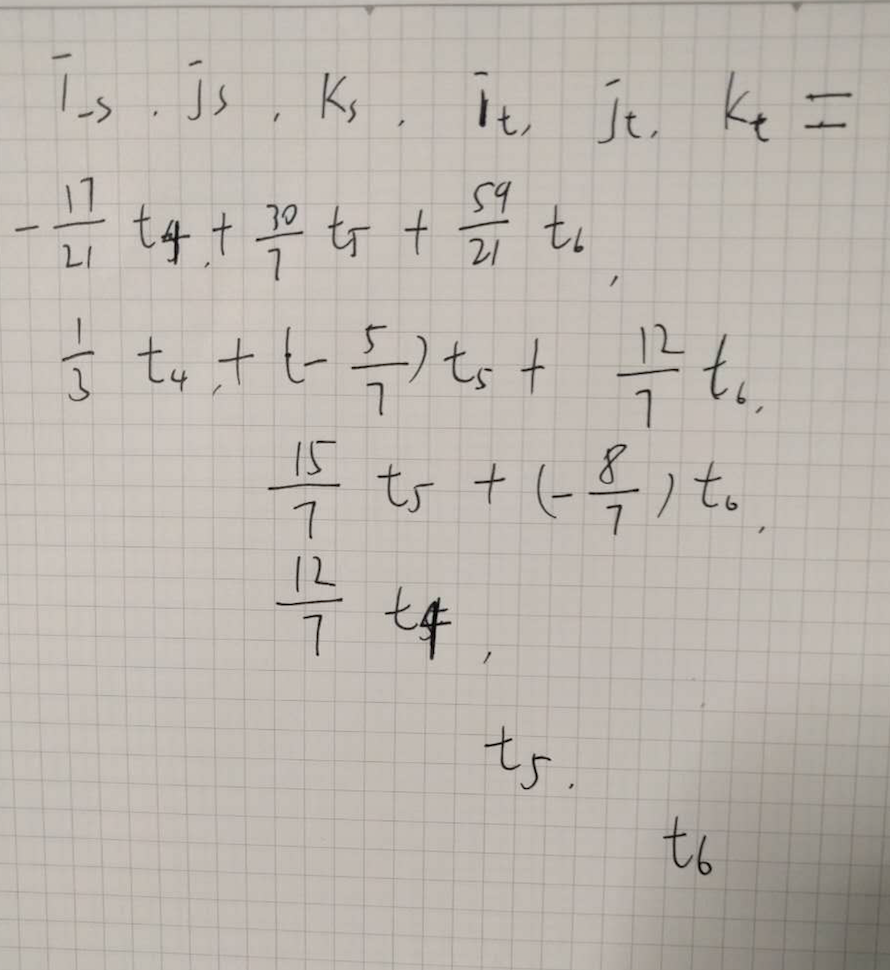 i_s , j_s , k_s , i_t , j_t , k_t =
- 17/21 t_4 , + 30/7 t_5 + 59/21 t_6 ,
1/3 t_4 , + (- 5/7) t_5 + 12/7 t_6 ,
15/7 t_5 + (- 8/7) t_6 ,
12/7 t_4 ,
t_5 .
t_6